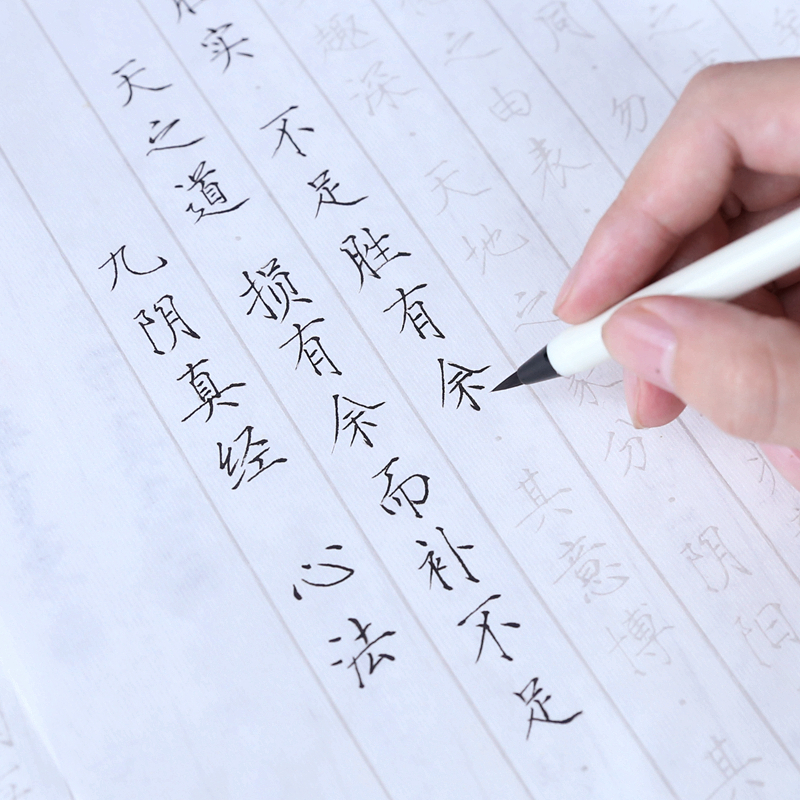 九阴真经 心法
天之道 损有余而补不足
胜实 不足胜有余 其意博 其
趣深 天地之象分 阴阳
之由表